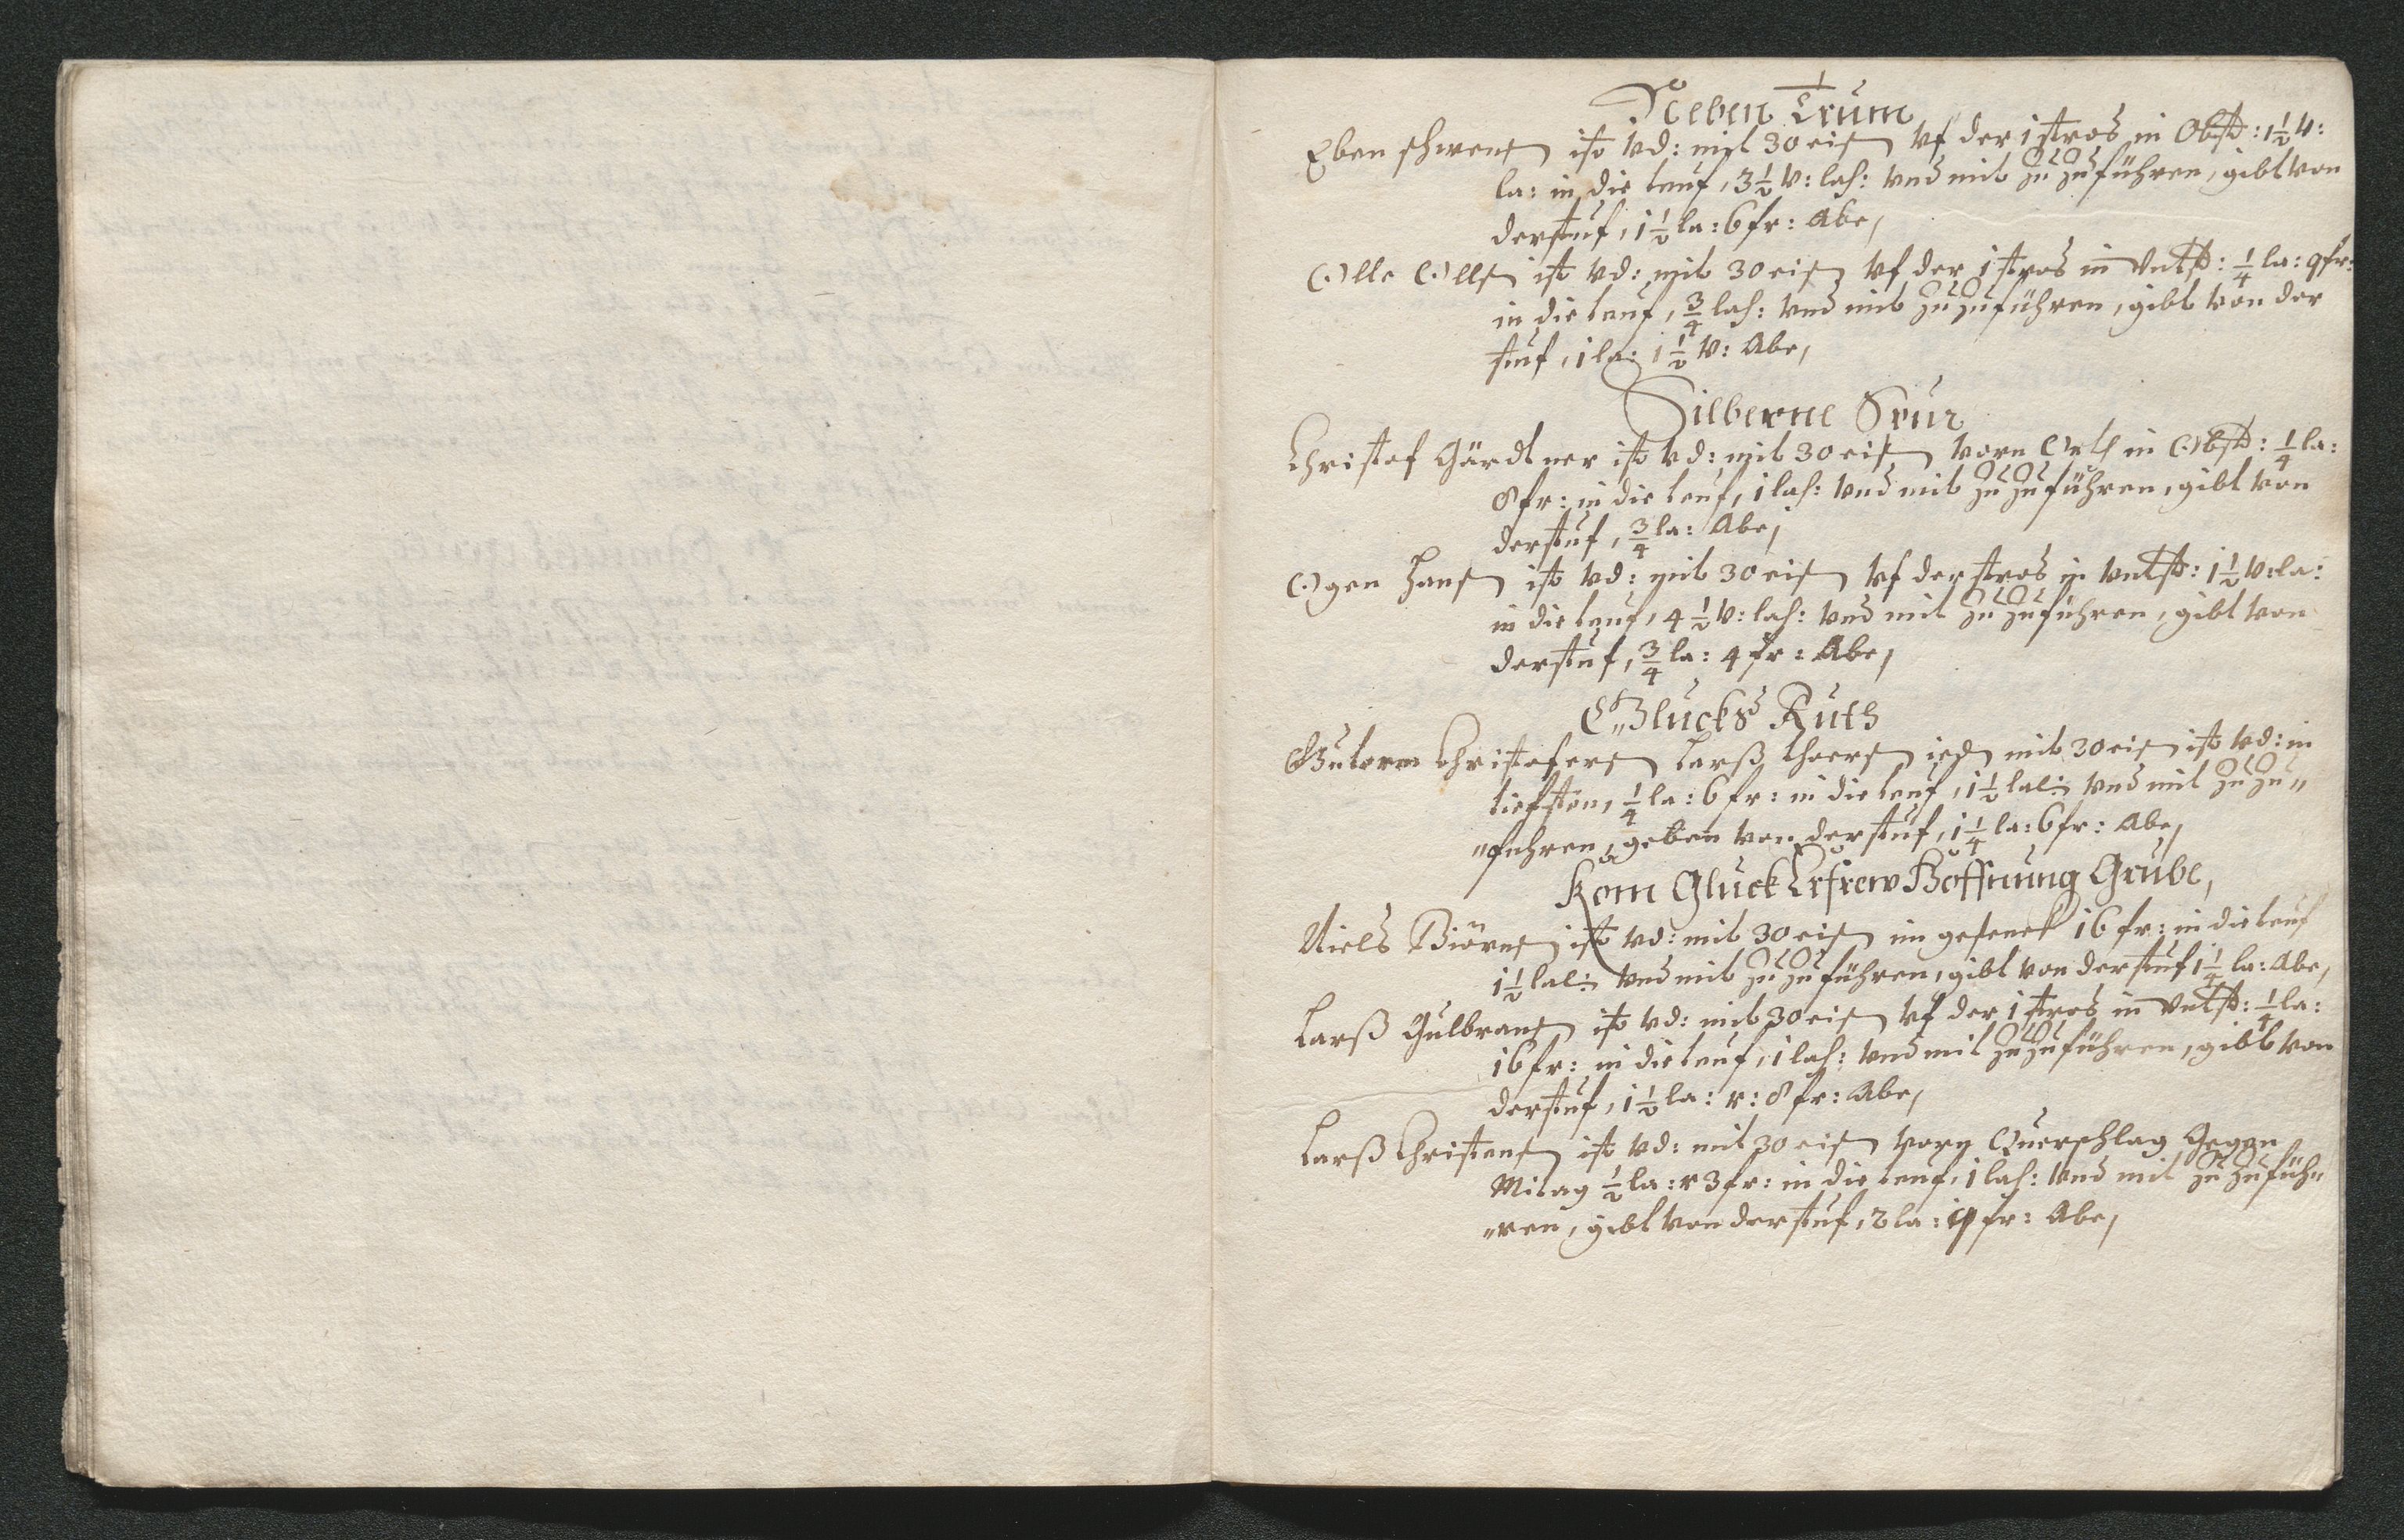 Neben Trum
Eben schwens ist vd: mit 30 eisn vf der 1 stros in Obst: 1½ v:
la: in die teuf, 3½ v: lah: vnd mit zu zu führen, gibt von
der stuf, 1½ la: 6 fr: Abe,
Olle Ollsn ist vd: mit 30 eisn vf der 1 stros in Vntst: ¼ la: 9 fr:
in die teuf, ¾ lah: vnd mit zu zu führen, gibt von der
stuf, 1 la: 1½ v: Abe,
Silberne Snur
Christof Gärdtner ist vd: mit 30 eisn vorn Orth in Obst: ¼ la:
8 fr: in die teuf, 1 lah: vnd mit zu zu führen, gibt von
der stuf, ¾ la: Abe,
Ogen Hansn ist vd: mit 30 eisn vf der stros in vntst: 1½ v: la:
in die teuf, 4½ v: lah: vnd mit zu zu führen, gibt von
der stuf, ¾ la: 4 fr: Abe,
Glucks Ruth
Gutorm Christofersn Larß thoersn jedn mit 30 eisn ist vd: in
tiefsten, ¼ la: 6 fr: in die teuf, 1½ lal: vnd mit zu zu"
"fuhren, geben von der stuf, 1¼ la: 6 fr: Abe,
Kom Gluck Erfrew Hoffnung Grube,
Niels Biörnsn ist vd: mit 30 eisn im gesenck 16 fr: in die teuf
1½ lal: vnd mit zu zu führen, gibt von der stuf 1¼ la: Abe,
Larß Gulbransn ist vd: mit 30 eisn vf der 1 stros in Vntst: ¼ la:
16 fr: in die teuf, 1 lah: vnd mit zu zu führen, gibt von
der stuf, 1½ la: r: 8 fr: Abe,
Larß Christensn ist vd: mit 30 eisn vorn Querschlag Gegen
Mitag ½ la: r 3 fr: in die teuf, 1 lah: vnd mit zu zu füh"
"ren, gibt von der stuf, 2 la: fr: Abe,